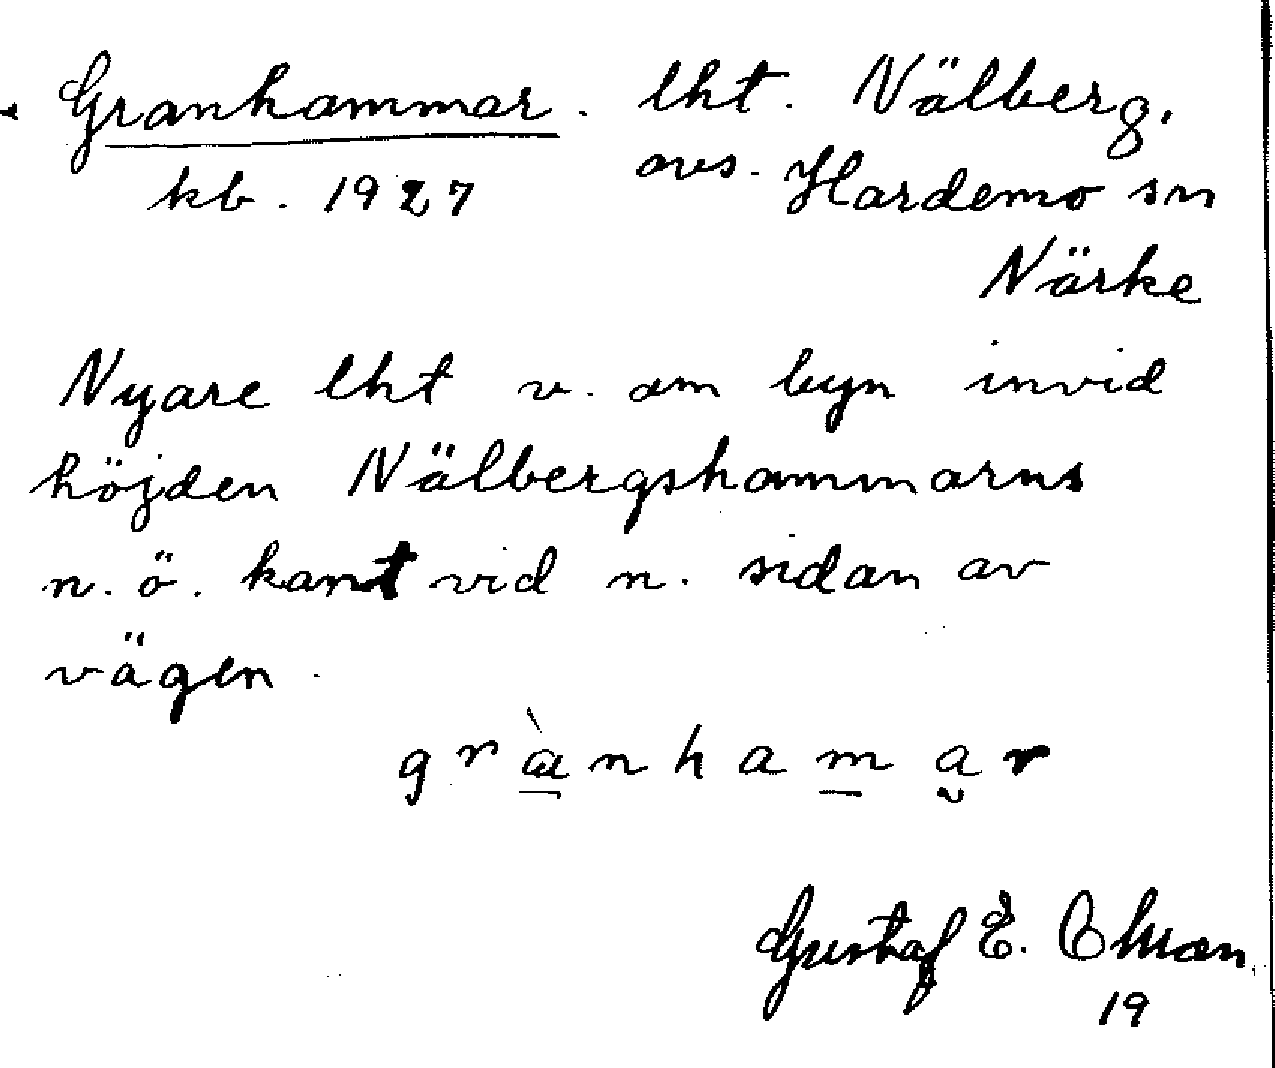 Granhammar. lht. Nälberg.
kb. 1927 avs. Hardemo sn
Närke
Nyare lht v. om byn invid
höjden Nälbergshammarns
n. ö. kant vid n. sidan av
vägen.
grànhamar
Gustaf E. Ohman
19